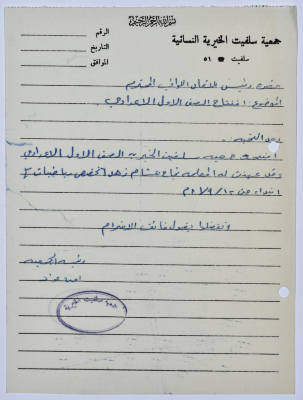 بسم الله الرحمن الرحيم
جمعية سلفيت الخيرية النسائية
سلفيت ☎ ٥١
الرقم
التاريخ
الموافق
حضرة رئيس الاتحاد اللوائي المحترم
الموضوع: افتتاح الصف الاول الاعدادي
بعد التحية
جمعية سلفيت الخيرية الصف الاول الاعدادي
وقد عينت له المعلمة نجاح هشام
ابتداء من
وتفضلوا بقبول فائق الاحترام
رئيسة الجمعية
جمعية سلفيت الخيرية